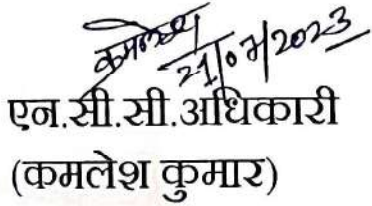 कमलेश
21/07/2023
एन.सी.सी.अधिकारी
(कमलेश कुमार)